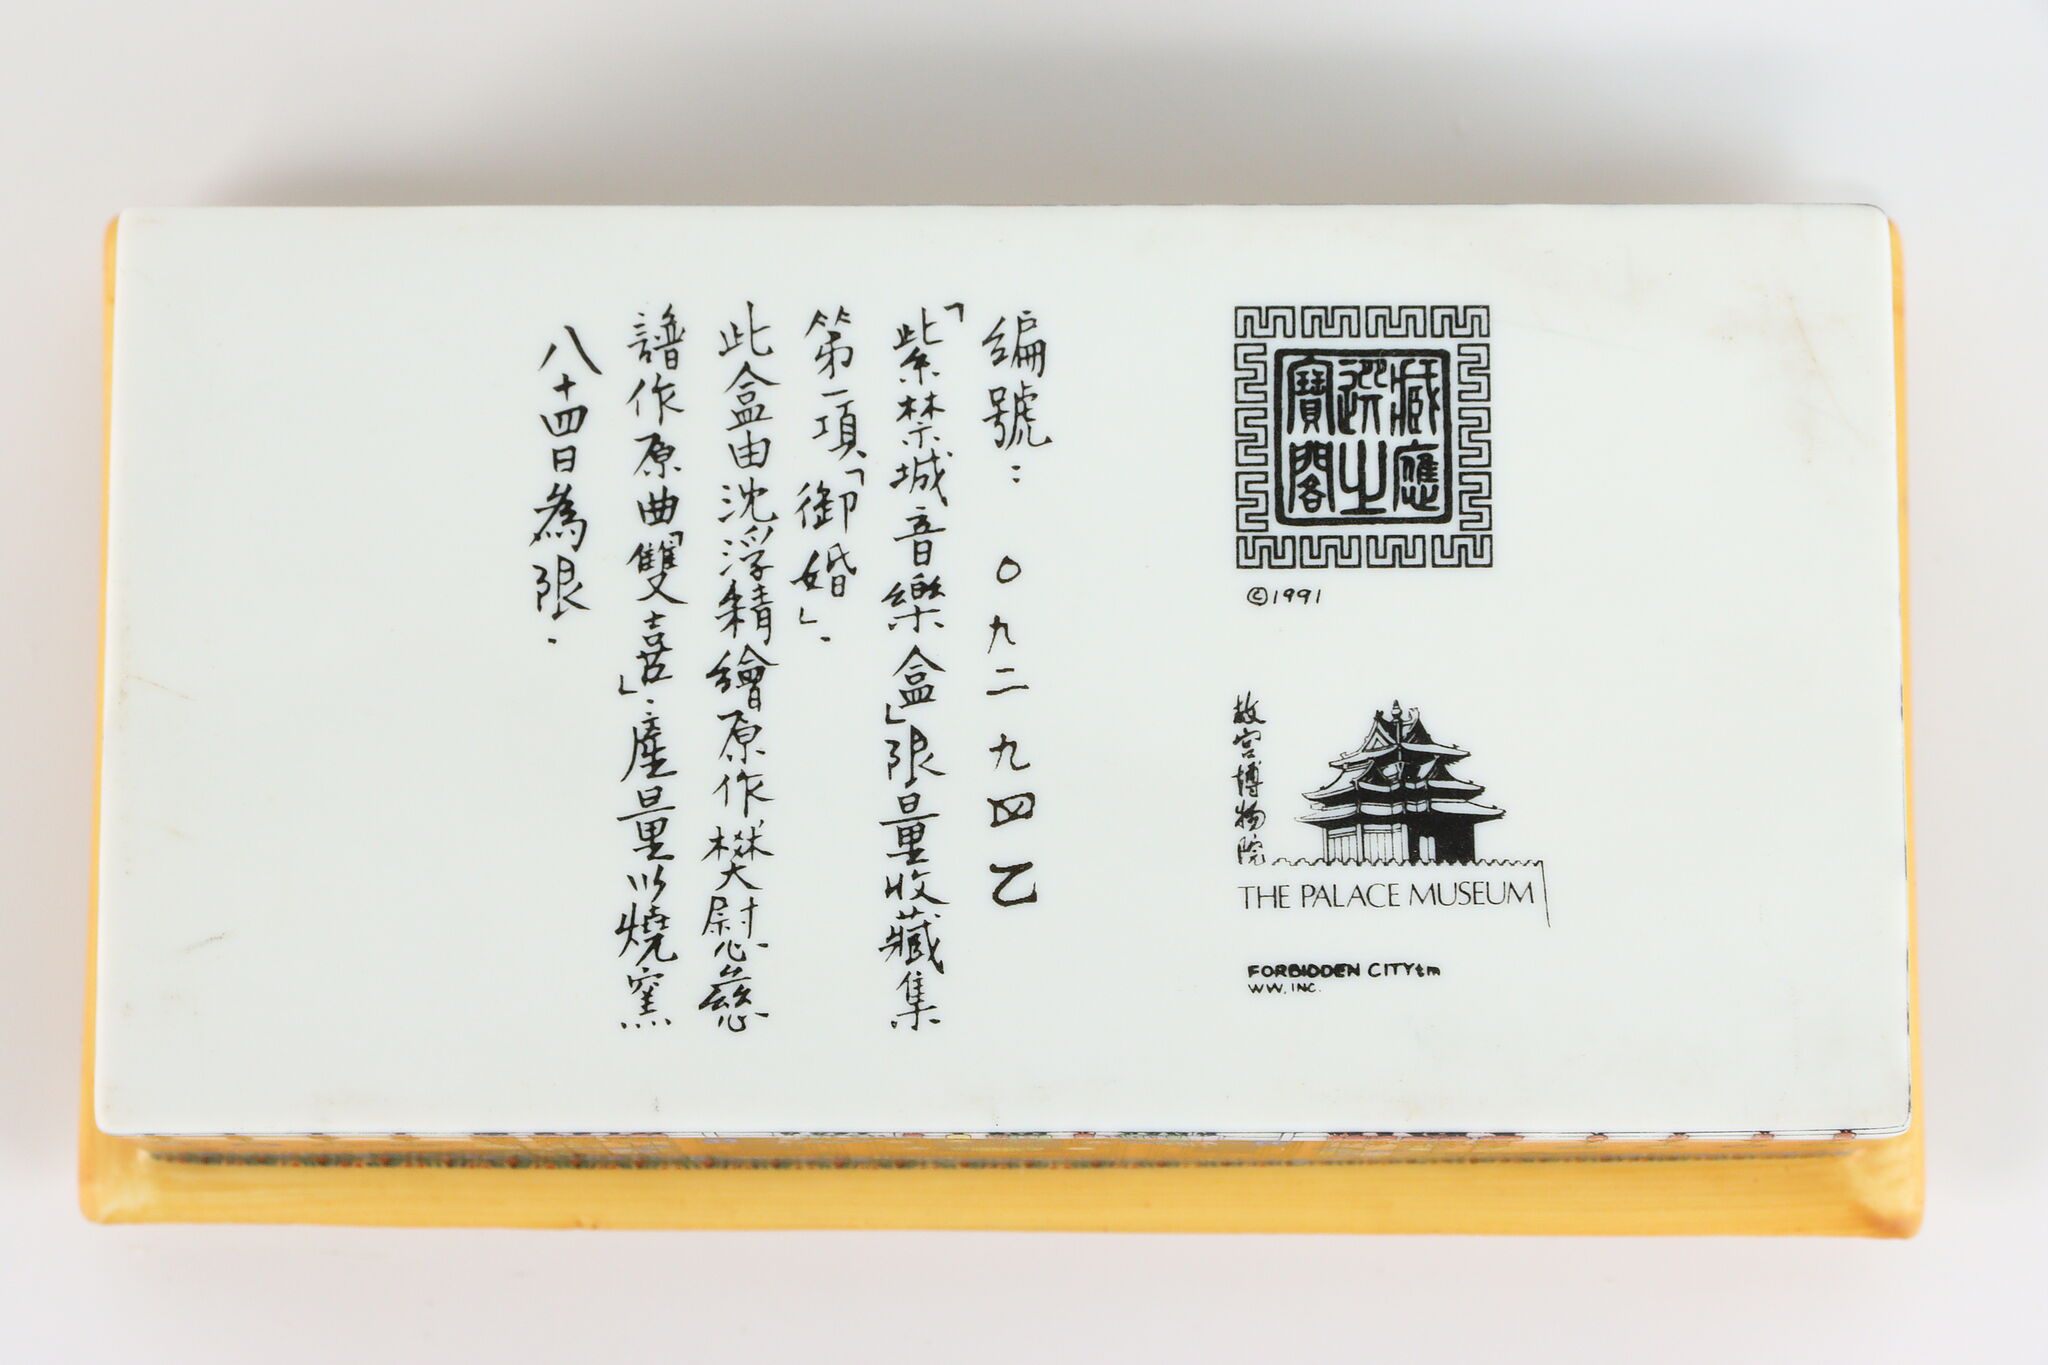 藏應
選之
寶閣
©1991
故宮博物院
THE PALACE MUSEUM
FORBIDDEN CITYtm
WW, INC.
編號: 〇九二九四乙
「紫禁城音樂盒」限量收藏集
第一項「御婚」.
此盒由沈浮精繪原作樊慰慈
譜作原曲「雙喜」.產量以燒窯
八十四日為限.